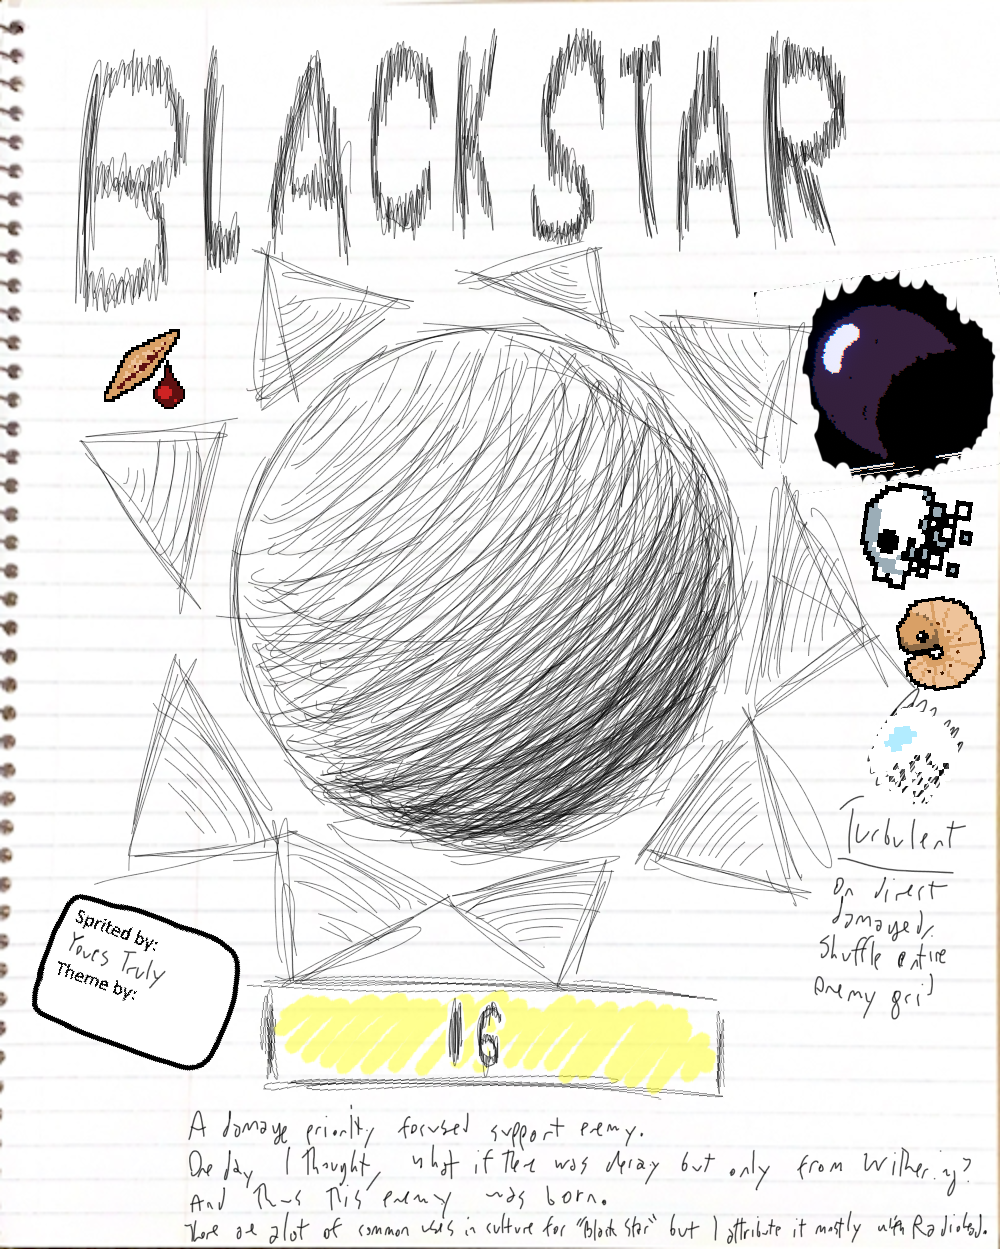 BLACKSTAR
Turbulent
On direct
damaged,
Shuffle entire
enemy grid
Sprited by:
Yours Truly
Theme by:
16
A damage priority focused support enemy.
One day I thought, what if there was decay but only from withering?
And thus this enemy was born.
There are alot of common uses in culture for "Black Star" but I attribute it mostly with Radiohead.